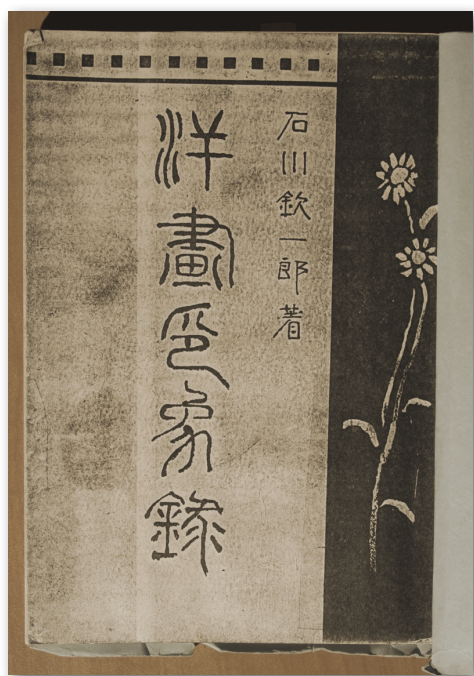 石川欽一郎著
洋畫印象録